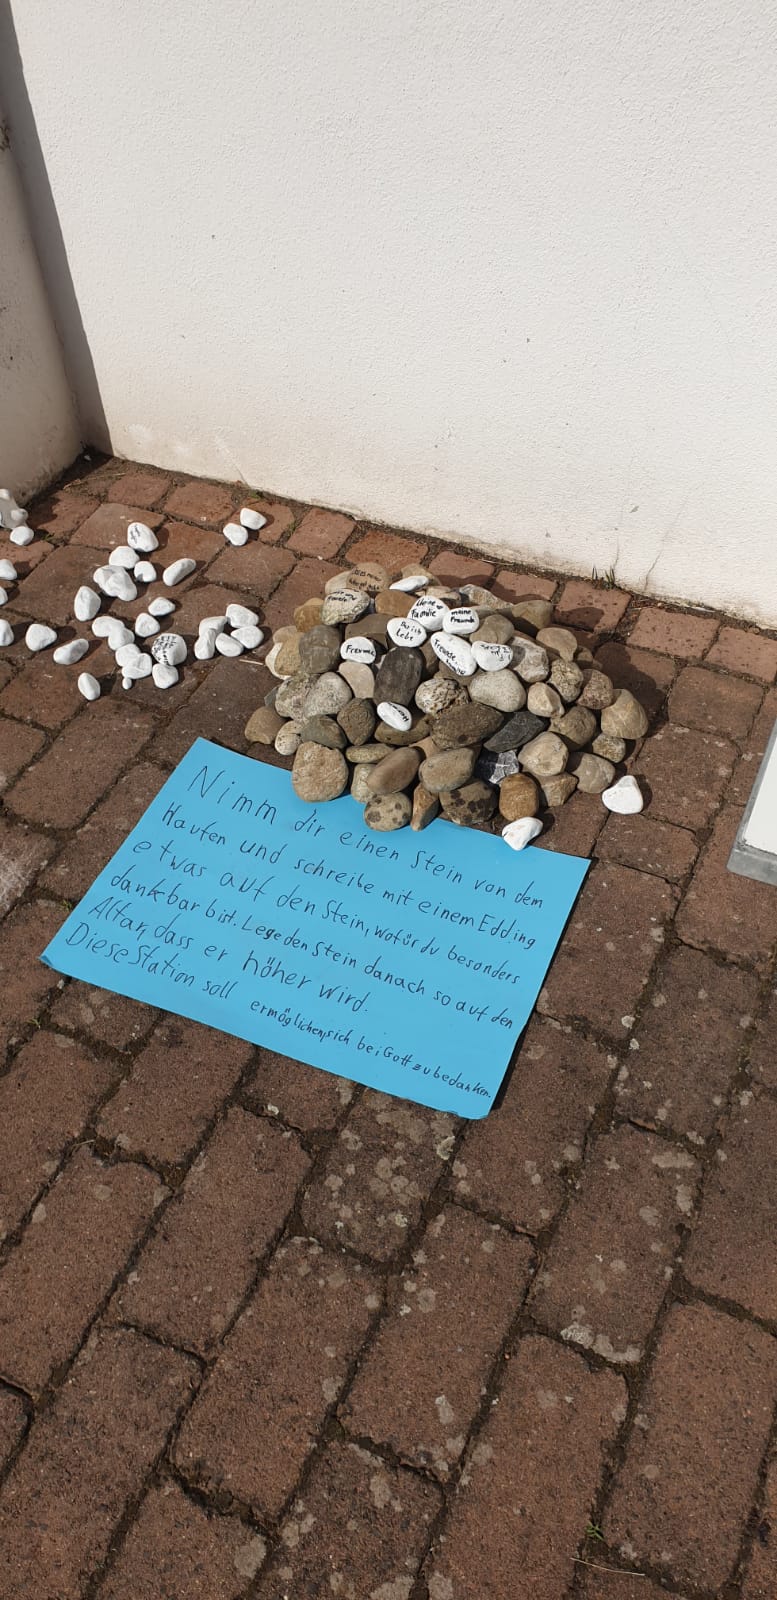 Meine Familie
meine Freunde
Das ich Lebe
Freunde
Freunde
Nimm dir einen Stein von dem
Haufen und schreibe mit einem Edding
etwas auf den Stein, wofür du besonders
dankbar bist. Lege den Stein danach so auf den
Altar, dass er höher wird.
Diese Station soll ermöglichen, sich bei Gott zu bedanken.